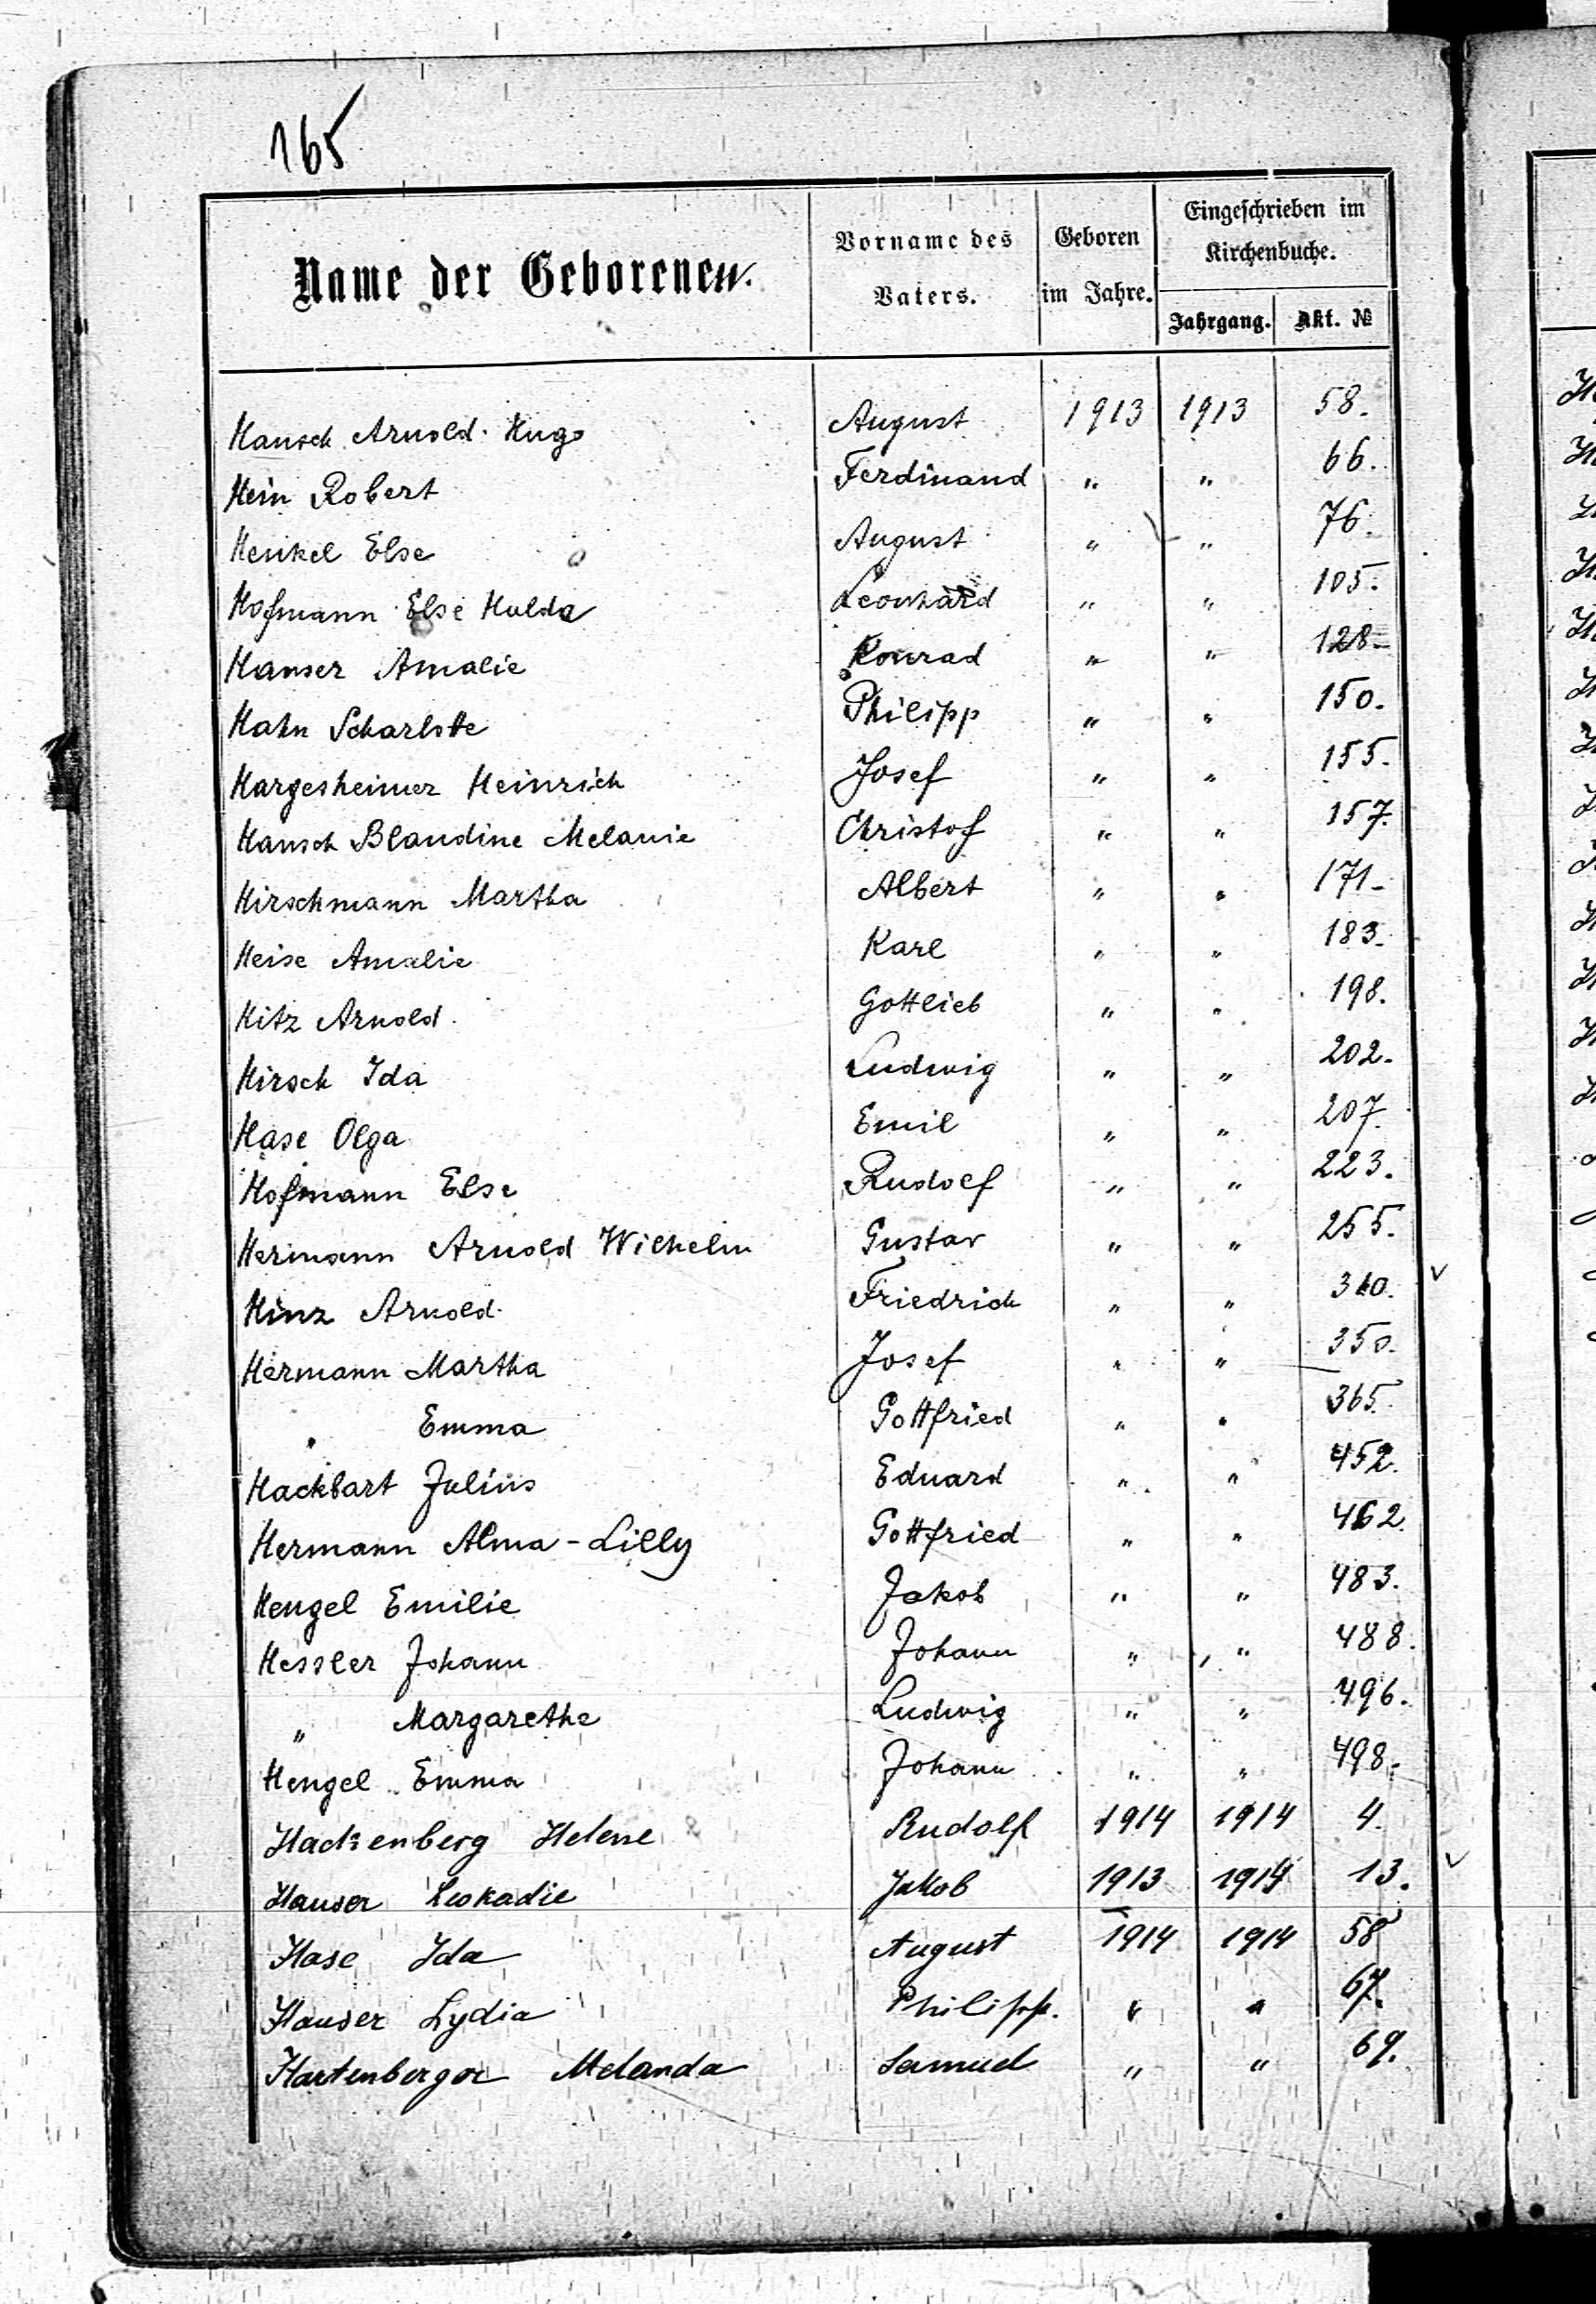 165
Name der Geborenen. Vorname des Vaters. Geboren im Jahre. Eingeschrieben im Kirchenbuche. Jahrgang. Akt. №
Hansch Arnold Hugo August 1913 1913 58.
Hein Robert Ferdinand " " 66.
Henkel Else August " " 76.
Hofmann Else Hulda Leonhard " " 105.
Hanser Amalie Konrad " " 128.
Hahn Scharlotte Philipp " " 150.
Hargesheimer Heinrich Josef " " 155.
Hansch Blandine Melanie Christof " " 157.
Hirschmann Martha Albert " " 171.
Heise Amalie Karl " " 183.
Hitz Arnold Gottlieb " " 198.
Hirsch Ida Ludwig " " 202.
Hase Olga Emil " " 207.
Hofmann Else Rudolf " " 223.
Hermann Arnold Wilhelm Gustav " " 255.
Hinz Arnold Friedrich " "
Hermann Martha Josef " " 350.
" Emma Gottfried " " 365.
Hackbart Julius Eduard " " 452.
Hermann Alma-Lilly Gottfried " " 462.
Hengel Emilie Jakob " " 483.
Hessler Johann Johann " " 488.
" Margarethe Ludwig " " 496.
Hengel Emma Johann " " 498.
Hackenberg Helene Rudolf 1914 1914 4.
Hauser Leokadie Jakob 1913 1914 13.
Hase Ida August 1914 1914 58
Hauser Lydia Philipp. " " 67.
Hartenberger Melanda Samuel " " 69.